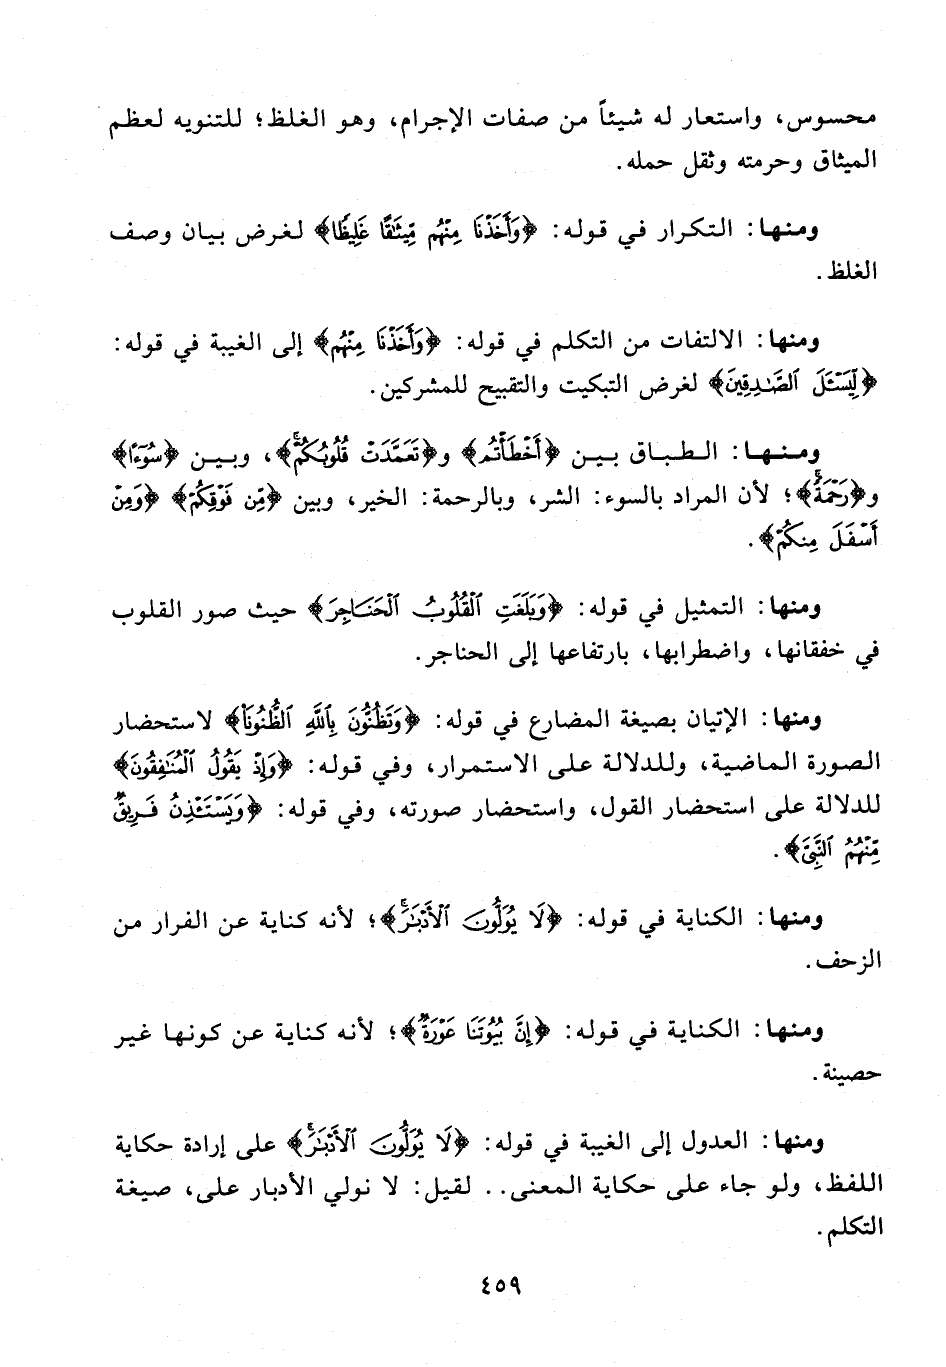 محسوس، واستعار له شيئاً من صفات الإجرام، وهو الغلظ؛ للتنويه لعظم
الميثاق وحرمته وثقل حمله.
ومنها: التكرار في قوله: ﴿وَأَخَذْنَا مِنْهُم مِّيثَٰقًا غَلِيظًا﴾ لغرض بيان وصف
الغلظ.
ومنها: الالتفات من التكلم في قوله: ﴿وَأَخَذْنَا مِنْهُم﴾ إلى الغيبة في قوله:
﴿لِّيَسْـَٔلَ ٱلصَّٰدِقِينَ﴾ لغرض التبكيت والتقبيح للمشركين.
ومنها: الطباق بين ﴿أَخْطَأْتُم﴾ و﴿تَعَمَّدَتْ قُلُوبُكُمْۚ﴾، وبين ﴿سُوٓءًا﴾
و﴿رَحْمَةًۚ﴾؛ لأن المراد بالسوء: الشر، وبالرحمة: الخير، وبين ﴿مِّن فَوْقِكُمْ﴾ ﴿وَمِنْ
أَسْفَلَ مِنكُمْ﴾.
ومنها: التمثيل في قوله: ﴿وَبَلَغَتِ ٱلْقُلُوبُ ٱلْحَنَاجِرَ﴾ حيث صور القلوب
في خفقانها، واضطرابها، بارتفاعها إلى الحناجر.
ومنها: الإتيان بصيغة المضارع في قوله: ﴿وَتَظُنُّونَ بِٱللَّهِ ٱلظُّنُونَا۠﴾ لاستحضار
الصورة الماضية، وللدلالة على الاستمرار، وفي قوله: ﴿وَإِذْ يَقُولُ ٱلْمُنَٰفِقُونَ﴾
للدلالة على استحضار القول، واستحضار صورته، وفي قوله: ﴿وَيَسْتَـْٔذِنُ فَرِيقٌ
مِّنْهُمُ ٱلنَّبِىَّ﴾.
ومنها: الكناية في قوله: ﴿لَا يُوَلُّونَ ٱلْأَدْبَٰرَۚ﴾؛ لأنه كناية عن الفرار من
الزحف.
ومنها: الكناية في قوله: ﴿إِنَّ بُيُوتَنَا عَوْرَةٌ﴾؛ لأنه كناية عن كونها غير
حصينة.
ومنها: العدول إلى الغيبة في قوله: ﴿لَا يُوَلُّونَ ٱلْأَدْبَٰرَۚ﴾ على إرادة حكاية
اللفظ، ولو جاء على حكاية المعنى.. لقيل: لا نولي الأدبار على، صيغة
التكلم.
٤٥٩